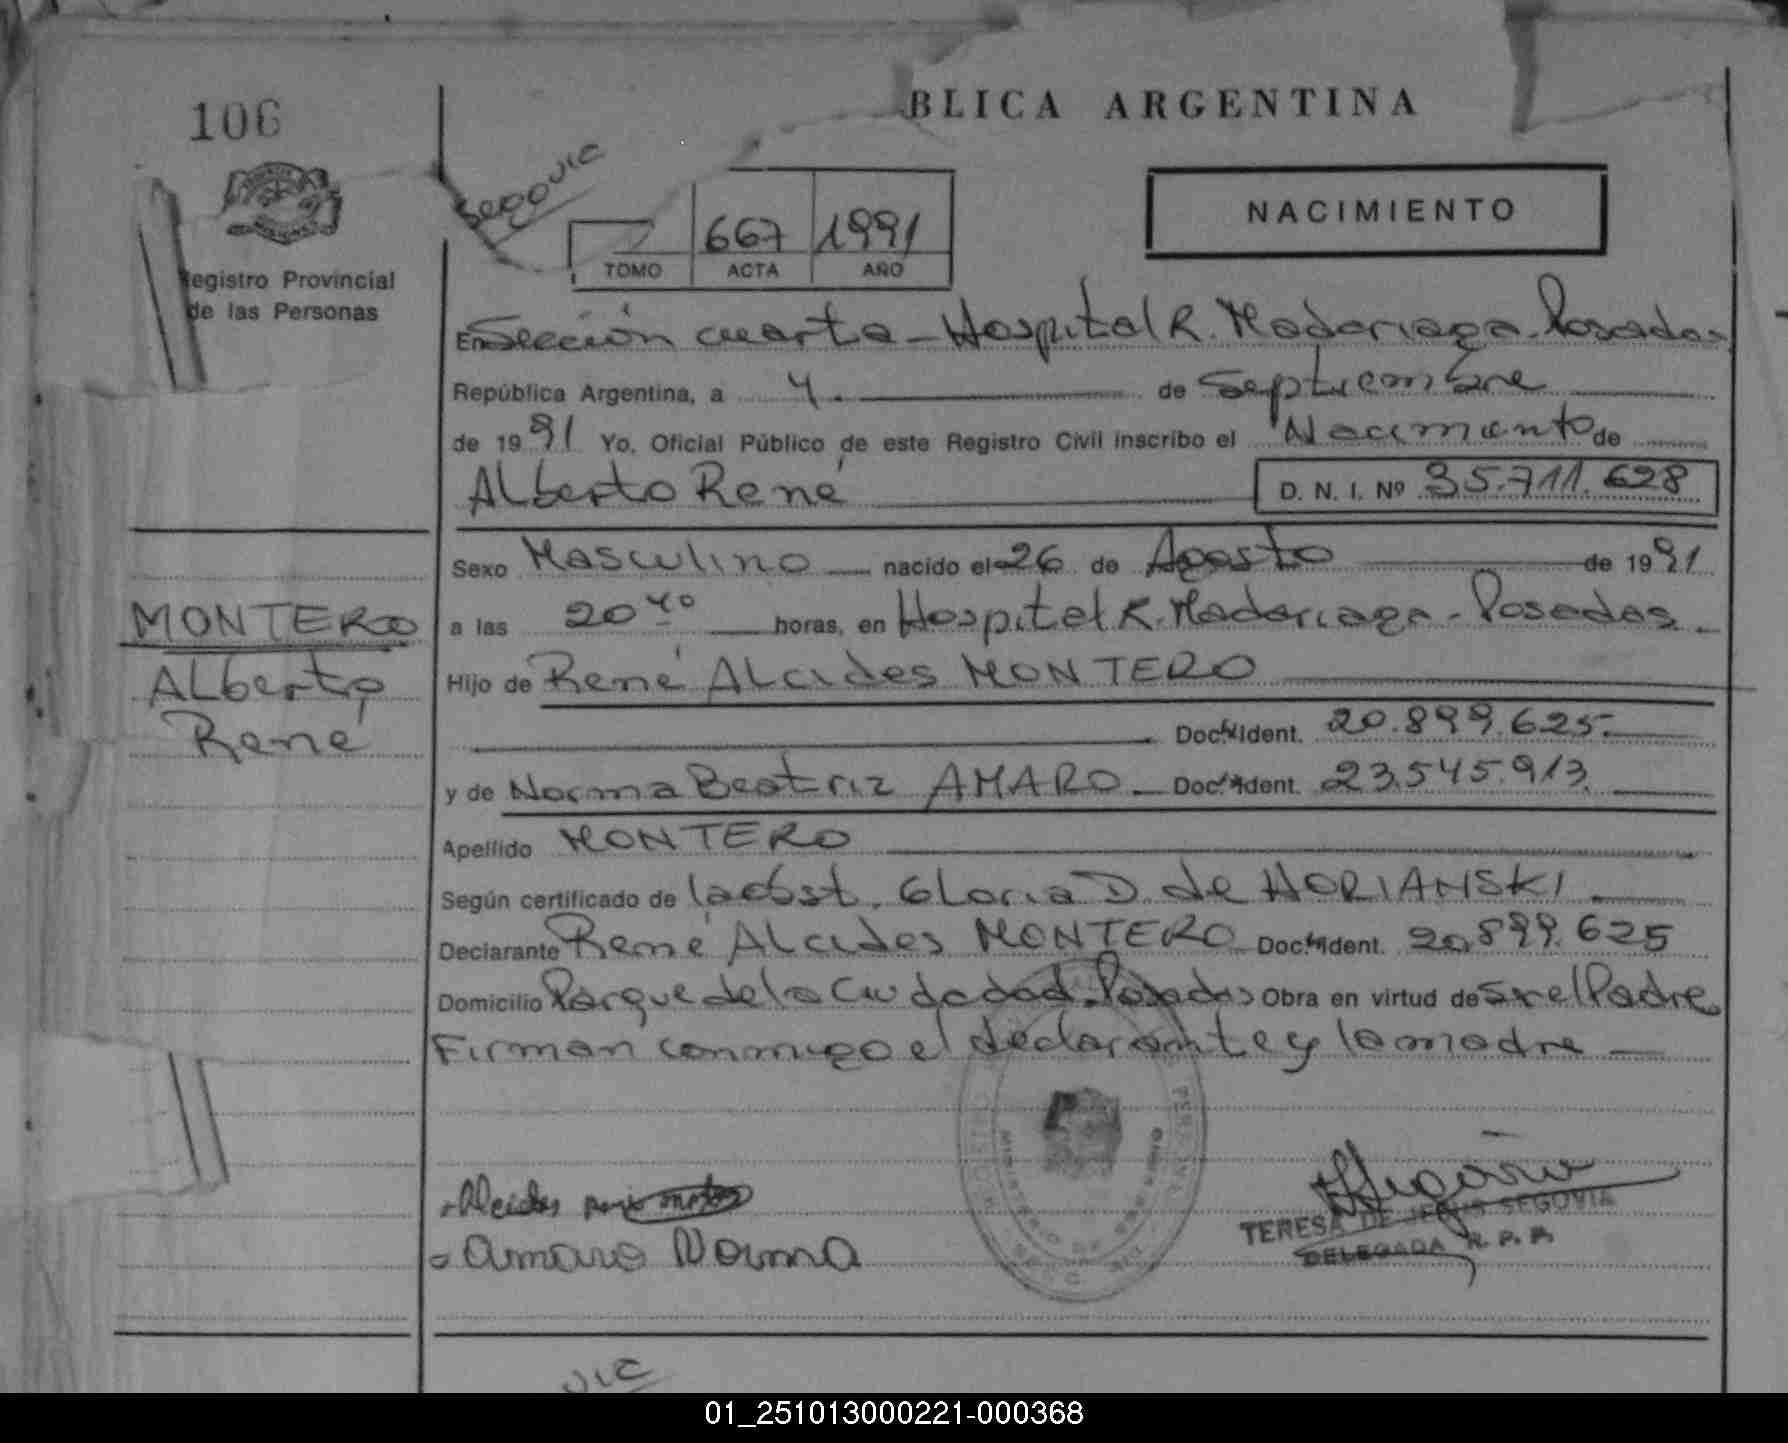 106
BLICA ARGENTINA
667 1991
TOMO ACTA AÑO
NACIMIENTO
Registro Provincial
de las Personas
En Sección cuarta - Hospital R. Madariaga - Posadas
República Argentina, a 4. de Septiembre
de 1991 Yo, Oficial Público de este Registro Civil inscribo el Nacimiento de
Alberto René D. N. I. Nº 35.711.628
MONTERO
Alberto
René
Sexo Masculino nacido el 26 de Agosto de 1991
a las 20 40 horas, en Hospital R. Madariaga - Posadas
Hijo de René Alcides MONTERO
Doc. Ident. 20.899.625
y de Norma Beatriz AMARO Doc. Ident. 23.545.913
Apellido MONTERO
Según certificado de la obst. Gloria D. de HORIANSKI
Declarante René Alcides MONTERO Doc. Ident. 20.899.625
Domicilio Parque de la Ciudad Posadas Obra en virtud de Ser el Padre
Firman conmigo el declarante y la madre
Alcides
Amaro Norma
TERESA DE JESUS SEGOVIA
DELEGADA R. P. P.
01_251013000221-000368